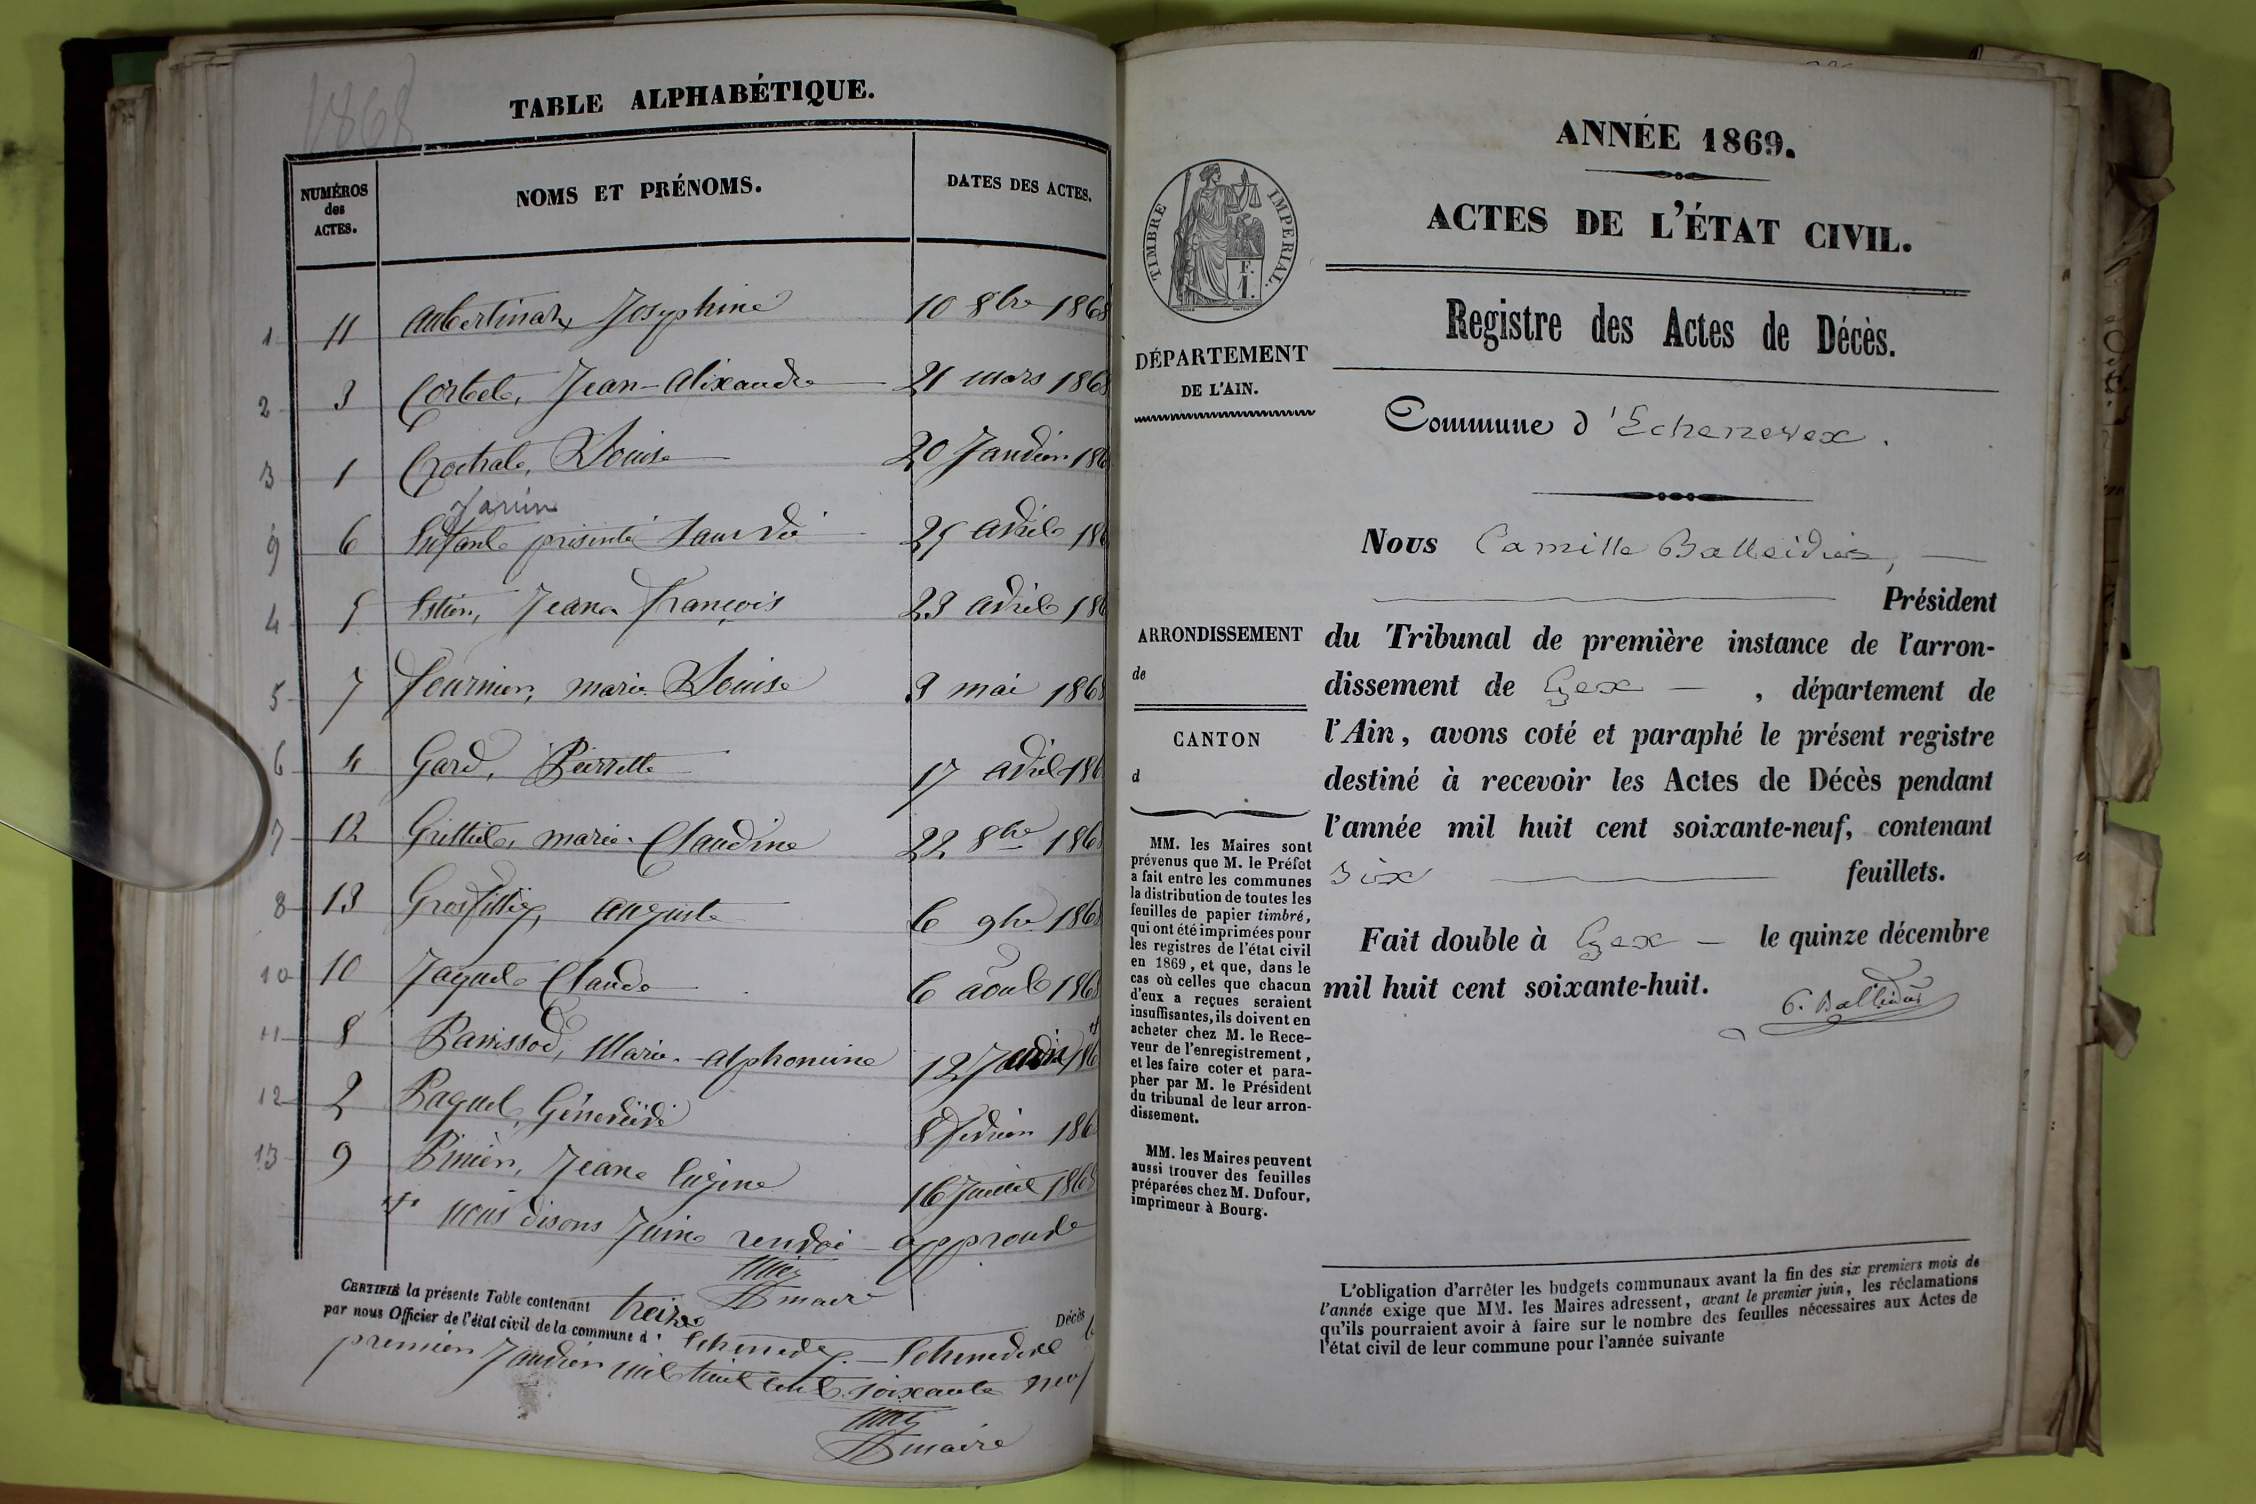 1868
TABLE ALPHABÉTIQUE.
NUMÉROS
des
ACTES.
NOMS ET PRÉNOMS.
DATES DES ACTES.
1 11 Josephine 10 8bre 1868
2 3 Corbet, Jean-Alixandre 21 mars 1868
3 1 Crochat, Louise 20 Janvier 186
Janin
9 6 Enfant présenté sans vie 25 avril 186
4 5 Jean François 23 avril 186
5 7 Fournier, marie Louise 3 mai 1868
6 4 Gard, Pierrette 17 avril 186
7 12 marie Claudine 22 8bre 1868
8 13 Grosfilley, auguste 6 9bre 1868
10 10 Jaquet Claude 6 août 1868
11 8 Panissod, Marie-alphonsine 12 186
12 2 Raquet, Géneviève 8 février 186
13 9 Jean Eugène 16 Juillet 1868
nous disons Juin renvoi approuvé
maire
CERTIFIÉ la présente Table contenant treize Décès
par nous Officier de l'état civil de la commune d' Echenevex. — Echenevex le
premier Janvier mil huit cent soixante neuf
maire
ANNÉE 1869.
ACTES DE L'ÉTAT CIVIL.
TIMBRE IMPÉRIAL.
F.
1.
Registre des Actes de Décès.
DÉPARTEMENT
DE L'AIN.
Commune d'Echenevex.
Nous Camille Balleidier,
Président
du Tribunal de première instance de l'arron-
dissement de Gex — , département de
l'Ain, avons coté et paraphé le présent registre
destiné à recevoir les Actes de Décès pendant
l'année mil huit cent soixante-neuf, contenant
six feuillets.
Fait double à Gex — le quinze décembre
mil huit cent soixante-huit.
C. Balleidier
ARRONDISSEMENT
de
CANTON
d
MM. les Maires sont
prévenus que M. le Préfet
a fait entre les communes
la distribution de toutes les
feuilles de papier timbré,
qui ont été imprimées pour
les registres de l'état civil
en 1869, et que, dans le
cas où celles que chacun
d'eux a reçues seraient
insuffisantes, ils doivent en
acheter chez M. le Rece-
veur de l'enregistrement,
et les faire coter et para-
pher par M. le Président
du tribunal de leur arron-
dissement.
MM. les Maires peuvent
aussi trouver des feuilles
préparées chez M. Dufour,
imprimeur à Bourg.
L'obligation d'arrêter les budgets communaux avant la fin des six premiers mois de
l'année exige que MM. les Maires adressent, avant le premier juin, les réclamations
qu'ils pourraient avoir à faire sur le nombre des feuilles nécessaires aux Actes de
l'état civil de leur commune pour l'année suivante